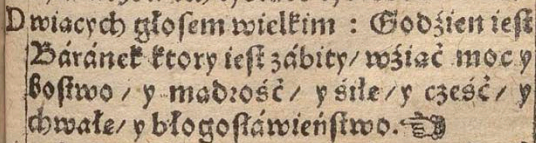 Dwiacych głosem wielkim : Godźien iest
Báránek ktory iest zábity/ wźiąć moc y
bostwo/ y mądrość/ y śiłę/ y cześć/ y
chwałę/ y błogosłáwieństwo.☜